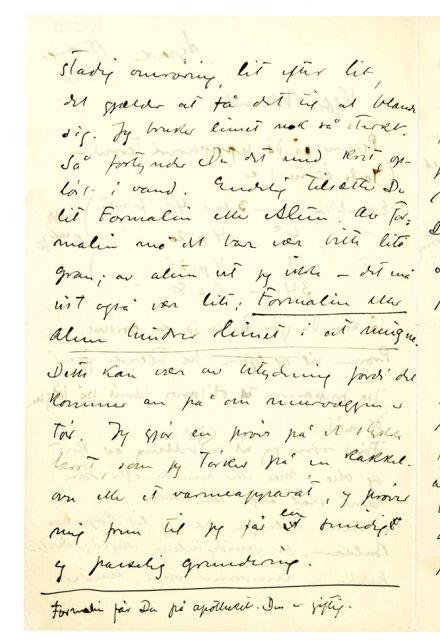 stadig omrøring, lit efter lit,
det gjælder at få det til at blande
sig. Jeg bruker limet nok så sterkt.
Så fortynder Du det med kort op-
løst i vand. Endelig tilsætter Du
lit Formalin eller Alun. Av For-
malin må det bare være bitte lite
gran; av alun vet jeg ikke – det må
vist også være lite; Formalin eller
alun hindrer limet i at mugne.
Dette kan være av betydning fordi det
kommer an på om murvæggen er
tør. Jeg gjør en prøve på et stykke
som jeg tørker på en kakkel-
ovn eller et varmeapparat, og prøver
mig frem til jeg får en smidig
og passelig grundering.
Formalin får Du på apotheket. Den er giftig.